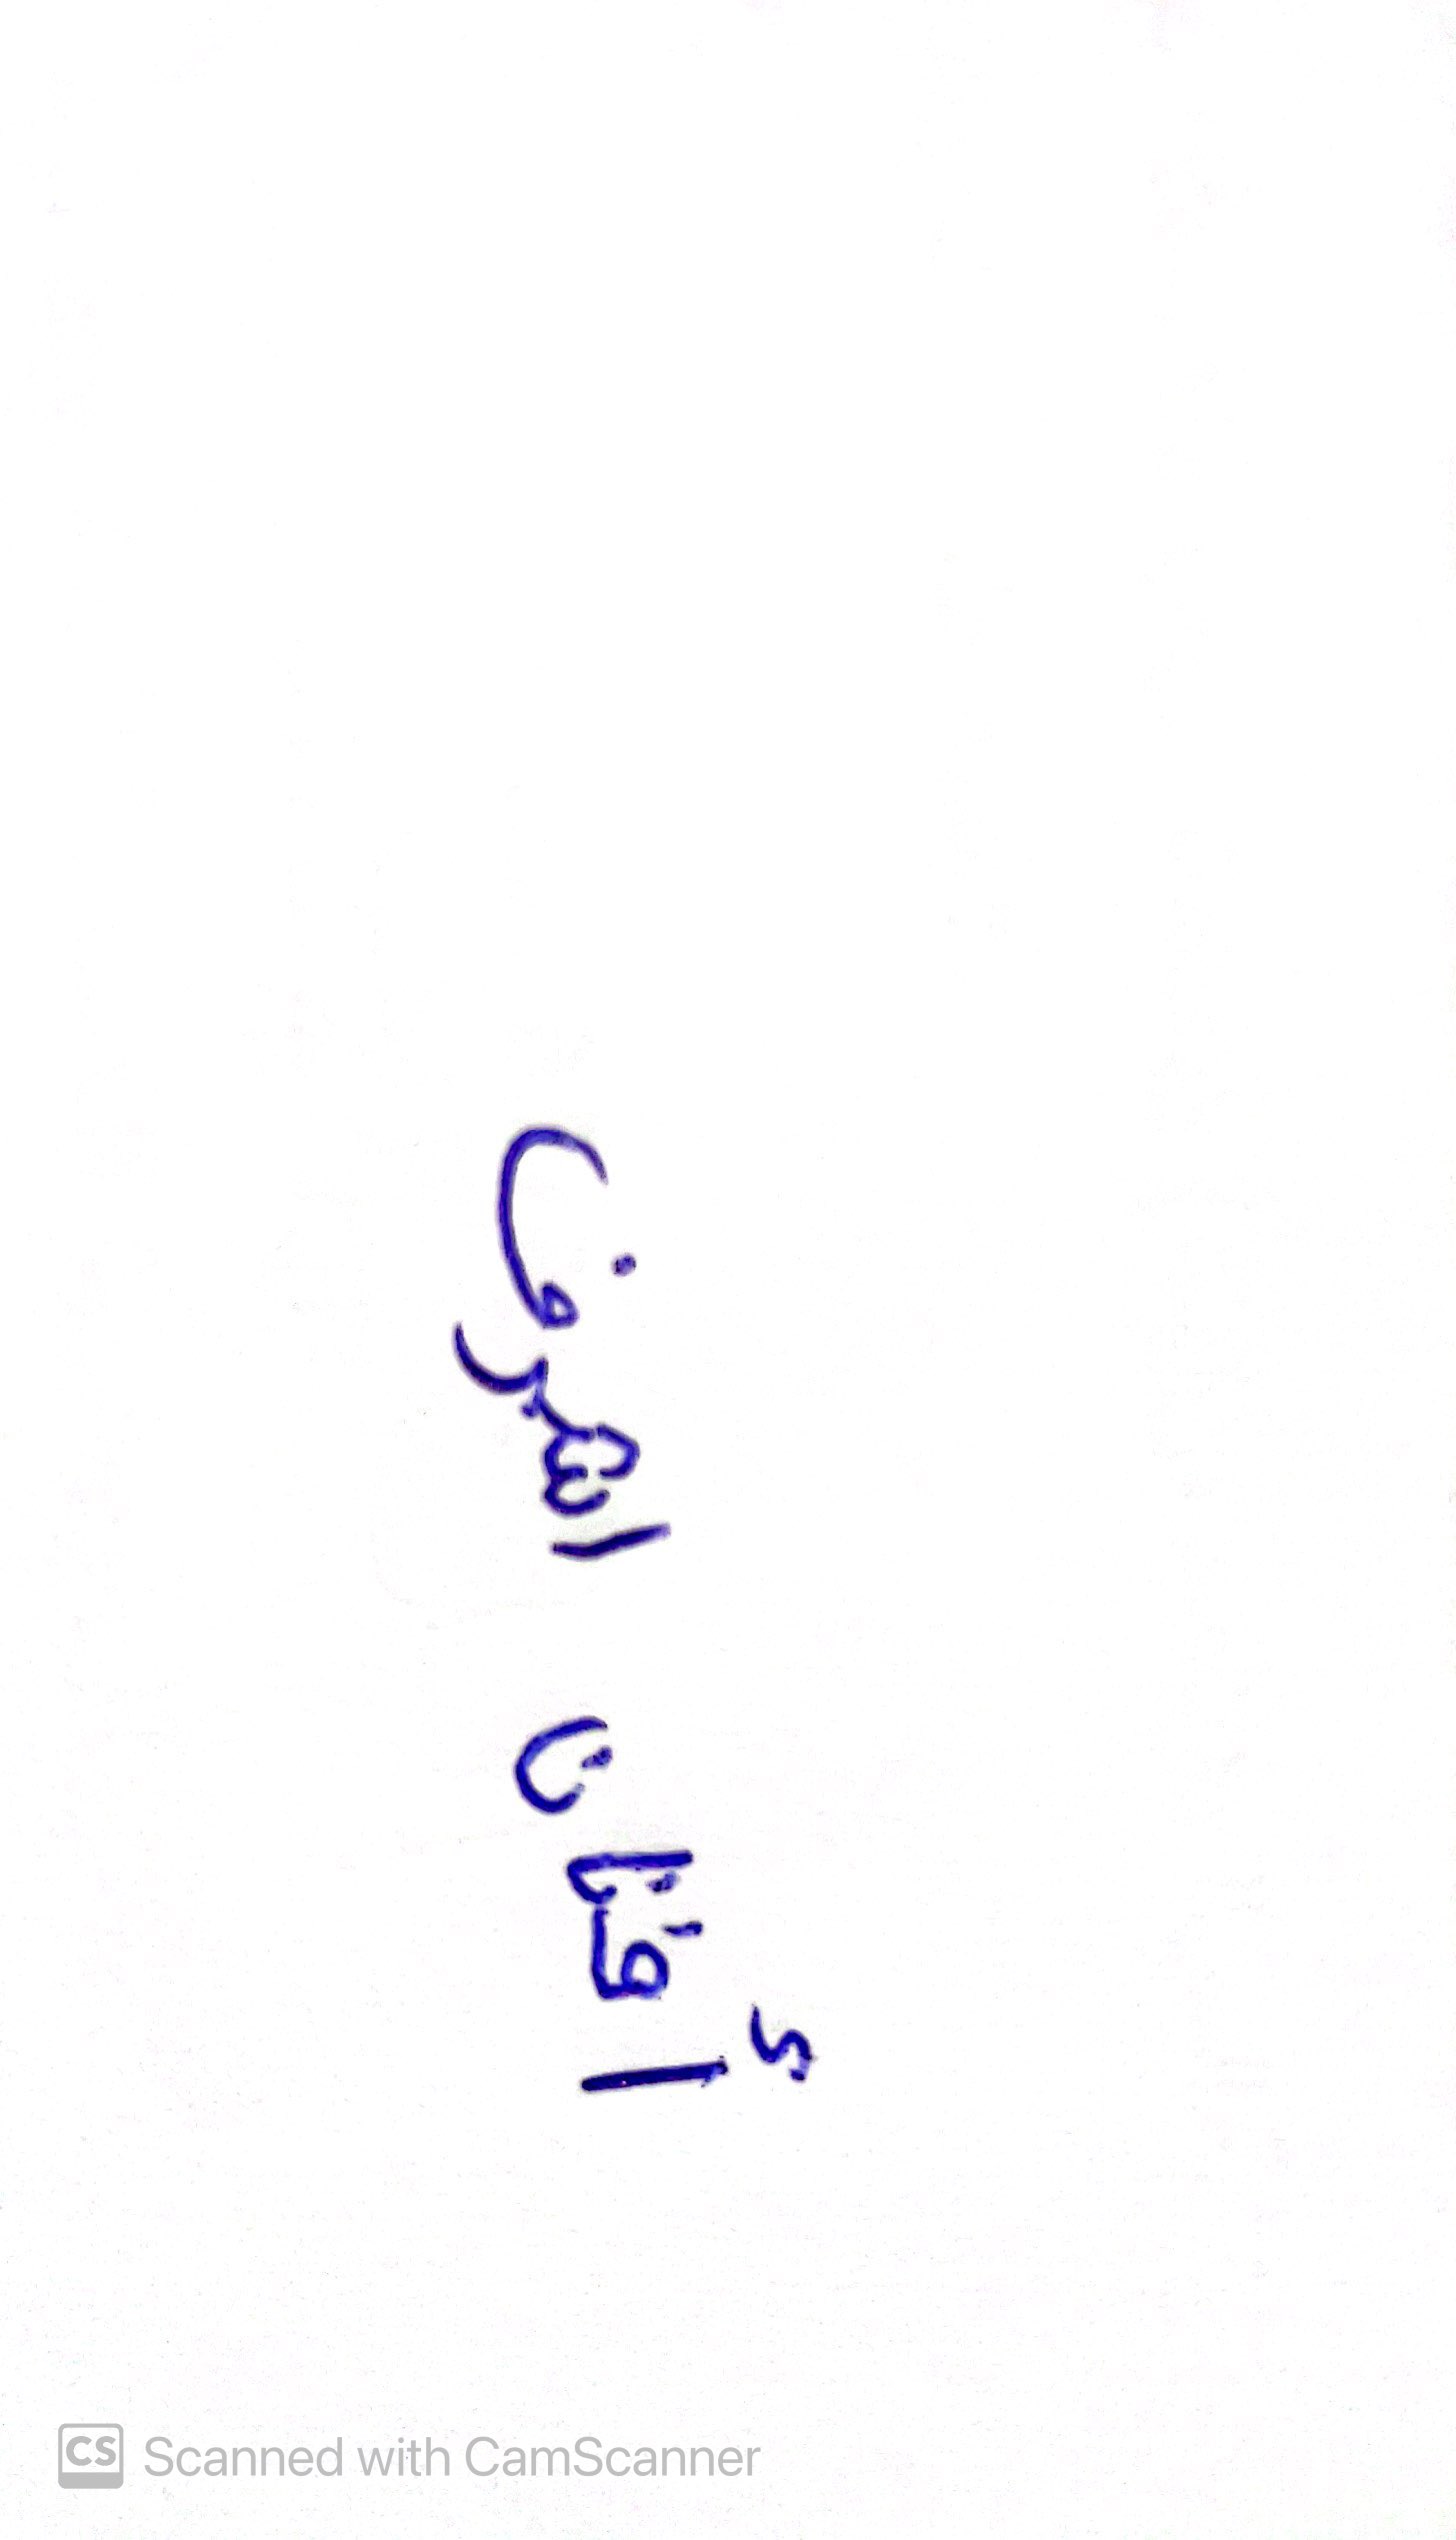 أفنان الشرف
Scanned with CamScanner
CS